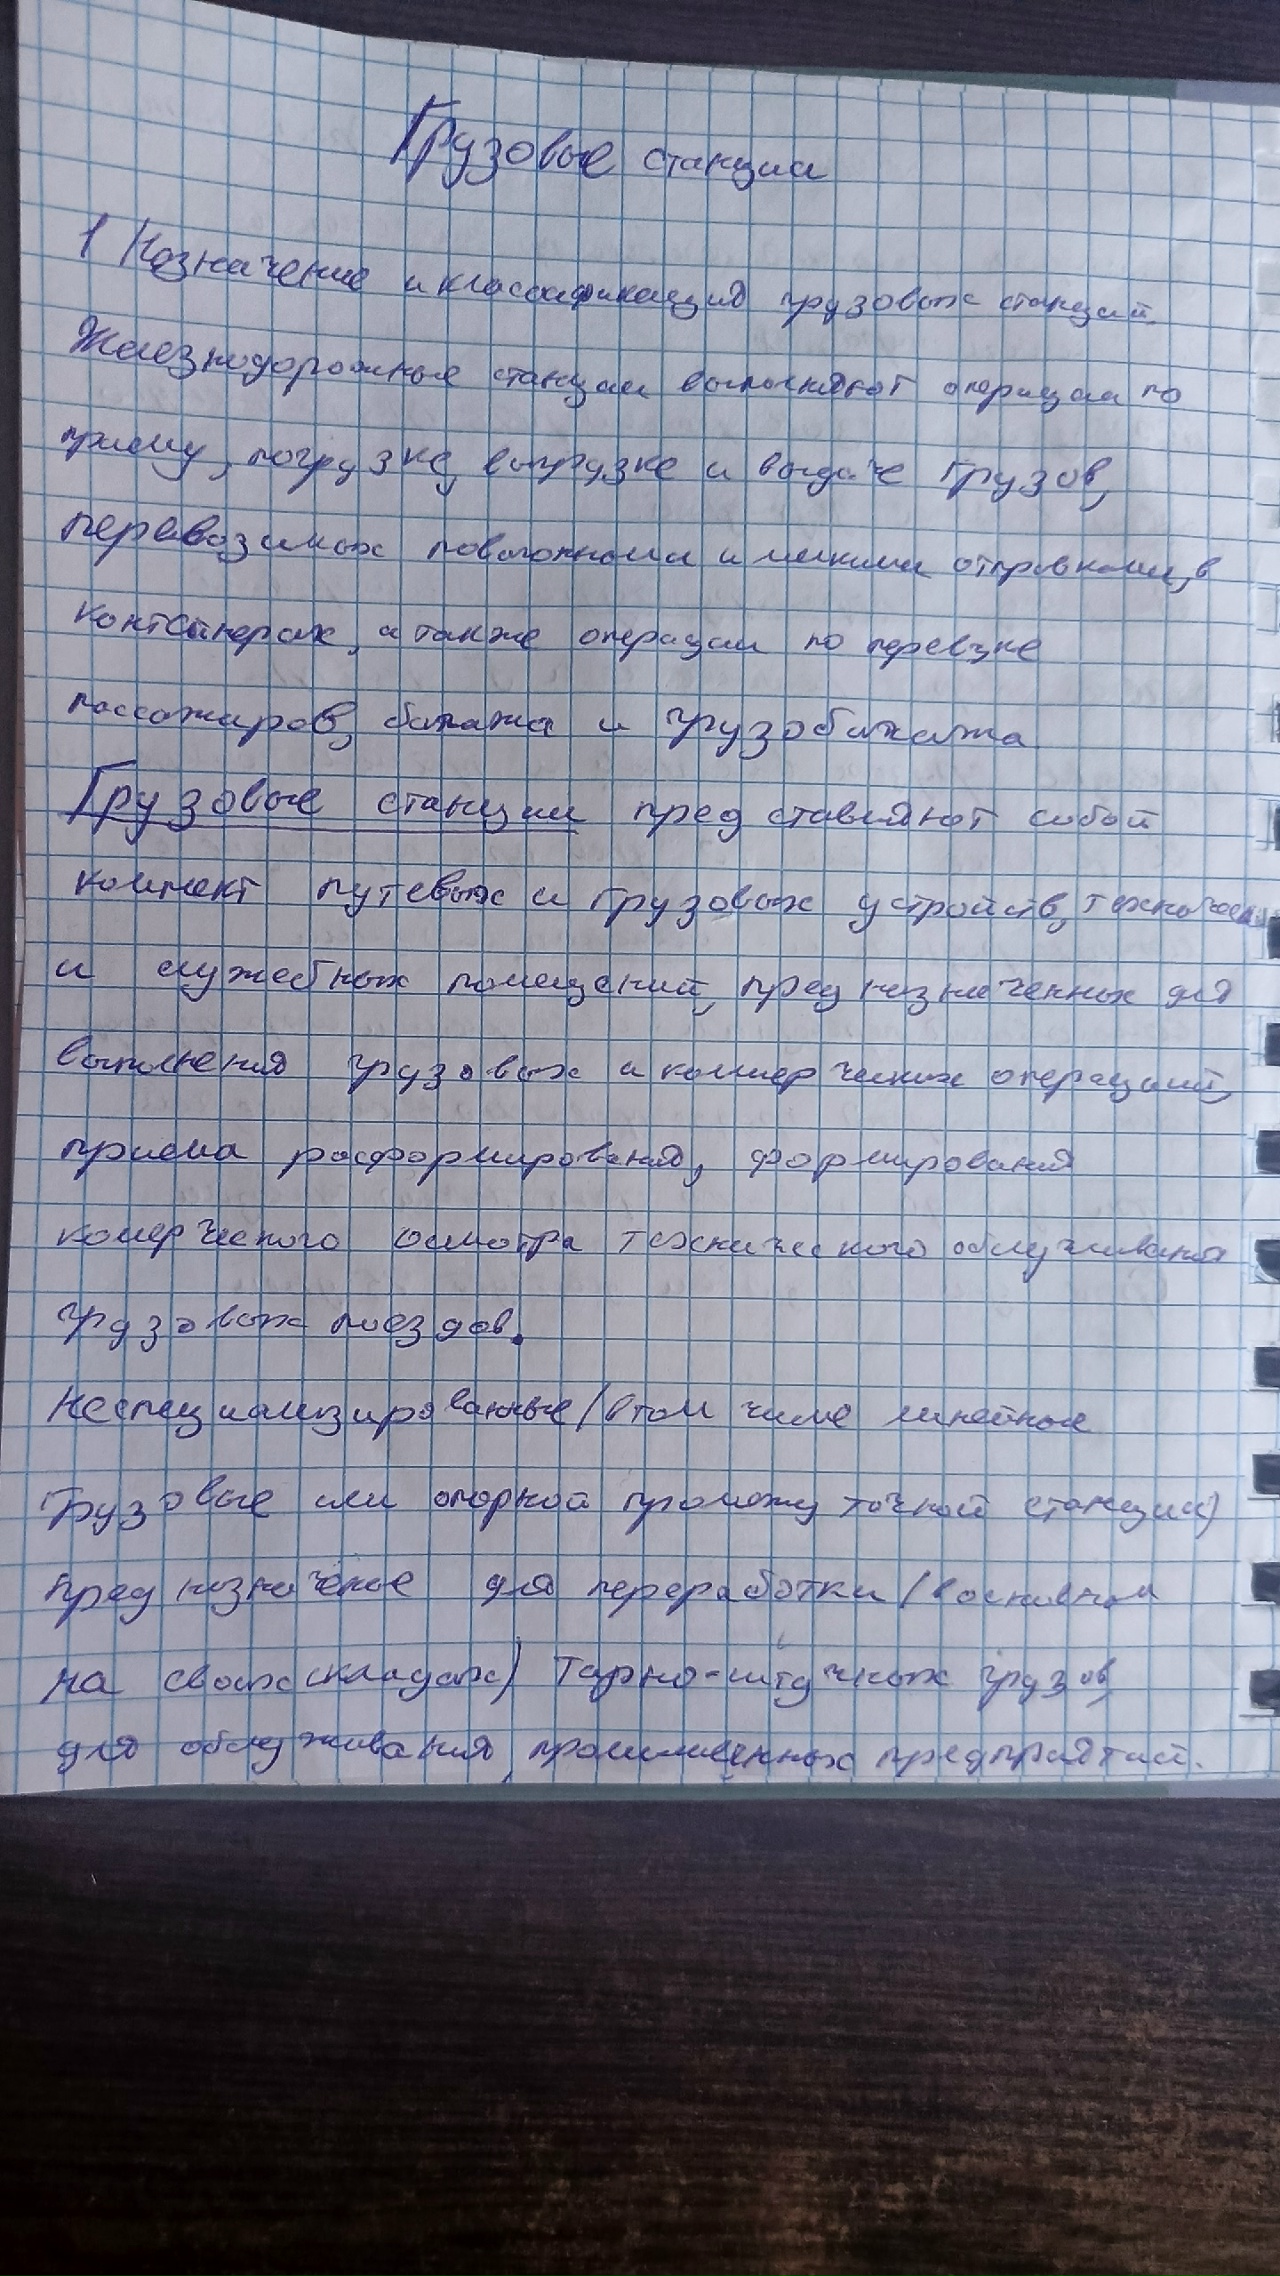 Грузовые станции
1 Назначение и классификация грузовых станций
Железнодорожные станции выполняют операции по
приему, погрузке, выгрузке и выдаче грузов,
перевозимых повагонными и мелкими отправками, в
контейнерах, а также операции по перевзке
пассажиров, багажа и грузобагажа
Грузовые станции представляют собой
комплект путевых и грузовых устройств, технических
и служебных помещений, предназначенных для
выполнения грузовых и коммерческих операций,
приема расформирования, формирования
комерческого осмотра технического обслуживания
грузовых поездов.
Неспециализированные (в том числе линейные
грузовые или опорной промежуточной станции)
предназначеные для переработки (в основном
на своих складах) тарно-штучных грузов,
для обслуживания промышленных предприятий.